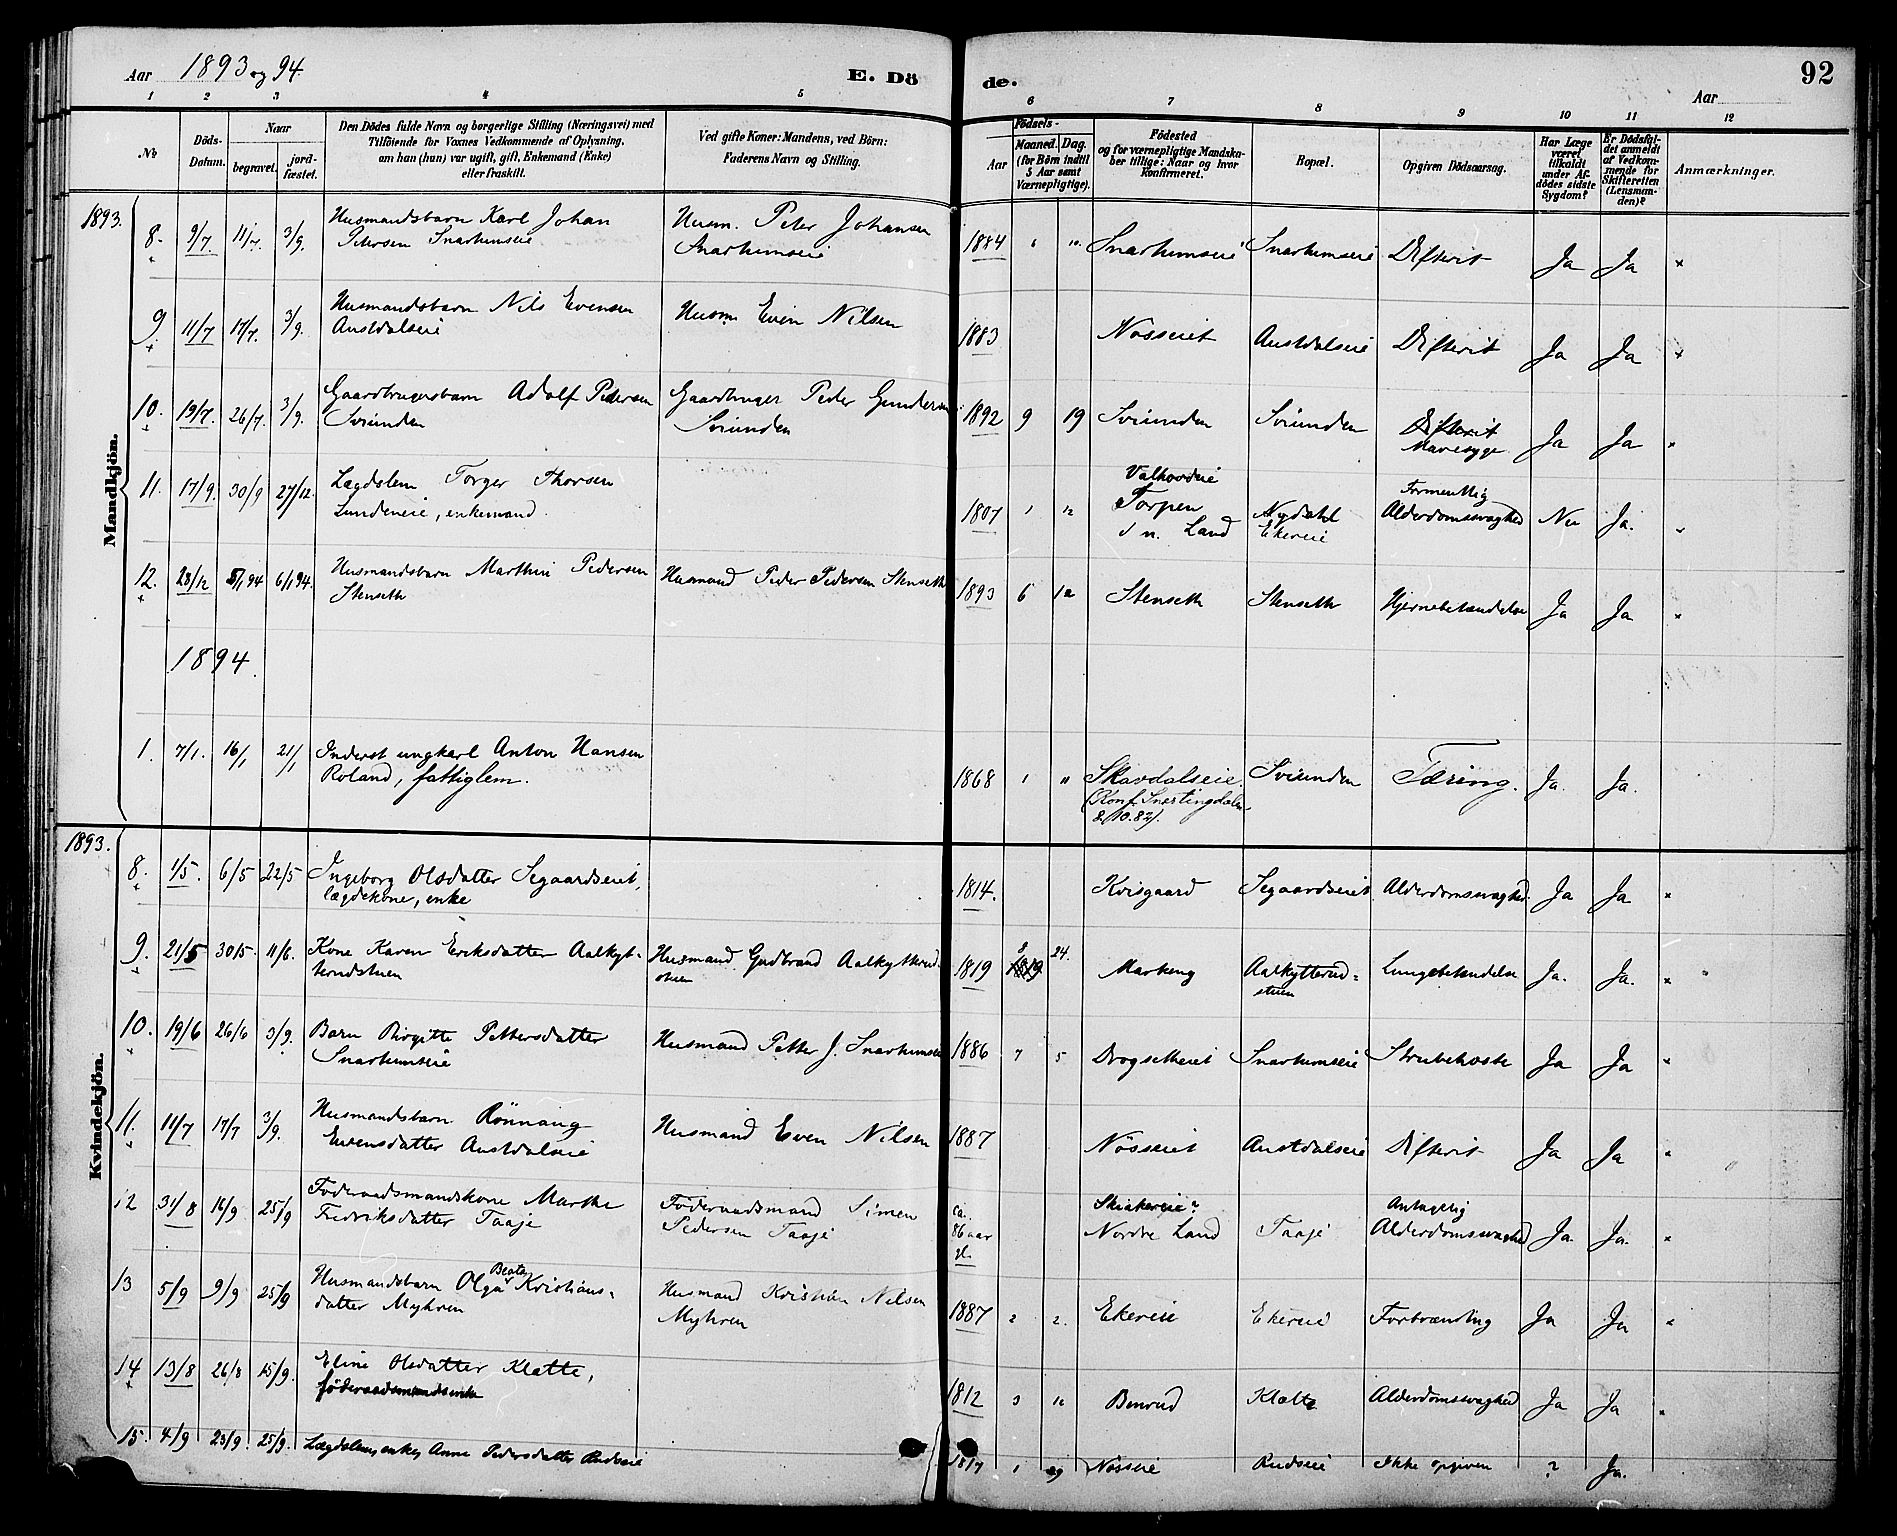 Aar 1893 og 94.
E. Dö
de.
Aar
92
1 2 3 4 5 6 7 8 9 10 11 12
No
Döds-Datum.
Naar
begravet.
jord-fæstet.
Den Dödes fulde Navn og borgerlige Stilling (Næringsvei) med
Tilföiende for Voxnes Vedkommende af Oplysning,
om han (hun) var ugift, gift, Enkemand (Enke)
eller fraskilt.
Ved gifte Koner: Mandens, ved Börn:
Faderens Navn og Stilling.
Födsels-
Aar
Maaned. Dag.
(for Börn indtil
5 Aar samt
Værnepligtige).
Födested
og for værnepligtige Mandska-
ber tillige: Naar og hvor
Konfirmeret.
Bopæl.
Opgiven Dödsaarsag.
Har Læge
været
tilkaldt
under Af-
dödes sidste
Sygdom?
Er Dödsfal-
det anmeldt
af Vedkom-
mende for
Skifteretten
(Lensman-
den)?
Anmærkninger.
Mandkjön.
1893.
8. 9/7. 11/7. 3/9. Husmandsbarn Karl Johan Husm. Peter Johansen 1884 Snarhumseie Snarhumseie Difterit Ja Ja
Petersen Snarhumseie Snarhumseie
9. 11/7 17/7. 3/9. Husmandsbarn Nils Evensen Husm. Even Nilsen 1883 Nösseiet Austdalseie Difterit Ja Ja
Austdalseie
10. 19/7. 26/7. 3/9. Gaardbrugersbarn Adolf Pedersen Gaardbruger Peder Gundersen 1892 9 19 Sviunden Sviunden Difterit Ja Ja
Sviunden Sviunden Mavesyge.
11. 17/9. 30/9 27/12. Lægdslem Torger Thorsen 1807 1 12 Valhovdeie Nydahl Formentlig
Lundeneie, enkemand. Torpen Ekereie Alderdomssvaghed Nei Ja.
i n. Land
12. 28/12 5/1 94 6/1 94. Husmandsbarn Marthin Pedersen Husmand Peder Pedersen Stenseth 1893 6 12 Stenseth Stenseth Hjernebetændelse Ja Ja
Stenseth
1894.
1. 7/1. 16/1 21/1 Inderst ungkarl Anton Hansen 1868 1 11 Skavdalseie Sviunden Tæring. Ja. Ja.
Roland, fattiglem. (Konf. Snertingdalen
8/10.82).
Kvindekjön.
1893.
8. 1/5. 6/5 22/5 Ingeborg Olsdatter Segaardseiet, 1814. Kvisgaard Segaardseiet Alderdomssvaghed. Ja Ja
lægdekone, enke
9. 21/5 30/5. 11/6. Kone Karen Eriksdatter Aalkyt- Husmand Gudbrand Aalkytterud- 1819 8 24. Markeng Aalkytterud- Lungebetændelse Ja. Ja.
terudstuen stuen stuen
10. 19/6 26/6 3/9. Barn Birgitte Pettersdatter Husmand Petter J. Snarhumseie 1886 7 5 Drogsetheiet Snarhumseie Strubehoste Ja Ja
Snarhumseie
11. 11/7 17/7 3/9. Husmandsbarn Rönnaug Husmand Even Nilsen 1887 Nösseiet Austdalseie Difterit Ja Ja
Evensdatter Austdalseie
12 31/8 16/9. 25/9 Föderaadsmandskone Marthe Föderaadsmand Simen ca. Skiakereie? Antagelig
Fredriksdatter Taaje Pedersen Taaje 86 aar gl. Nordre Land Taaje Alderdomssvaghed Ja Ja.
13 5/9 9/9 25/9 Husmandsbarn Olga Beata Kristians- Husmand Kristian Nilsen 1887 2 2. Ekereie Ekereie Forbrænding Ja Ja
datter Myhren Myhren
14 13/8 26/8 15/9. Eline Olsdatter Klætte, 1812 3 12 Benrud Klætte Alderdomssvaghed Ja Ja
föderaadsmandsenke
15. 4/9 23/9. 25/9. Lægdslem, enke, Anne Pedersdatter Rudseie 1817 1 29 Nösseie Rudseie Ikke opgiven ? Ja.